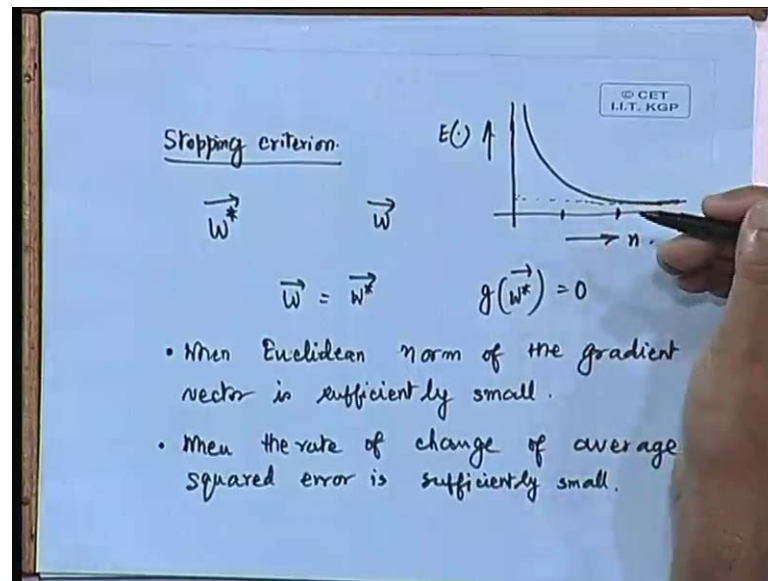 © CET
I.I.T. KGP
Stopping criterion.
E(·) ↑
w⃗* w⃗
→ n.
w⃗ = w⃗* g(w⃗*) = 0
• When Euclidean norm of the gradient
vector is sufficiently small.
• When the rate of change of average
squared error is sufficiently small.